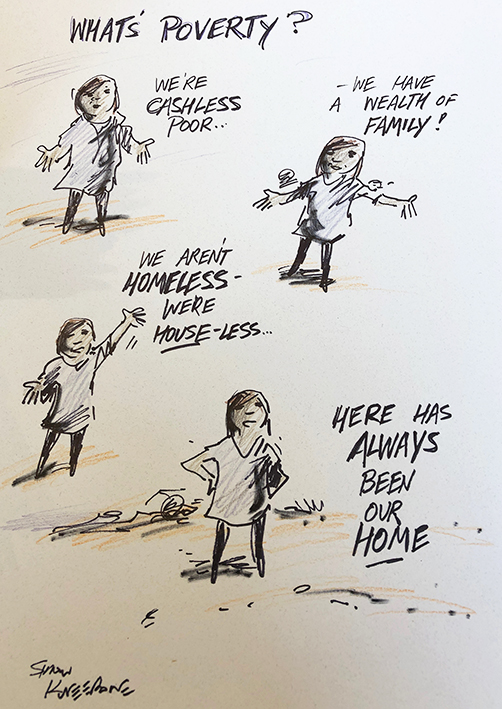 WHATS' POVERTY?
WE'RE
CASHLESS
POOR...
- WE HAVE
A WEALTH OF
FAMILY!
WE AREN'T
HOMELESS-
WERE
HOUSE-LESS...
HERE HAS
ALWAYS
BEEN
OUR
HOME
SIMON
KNEEBONE